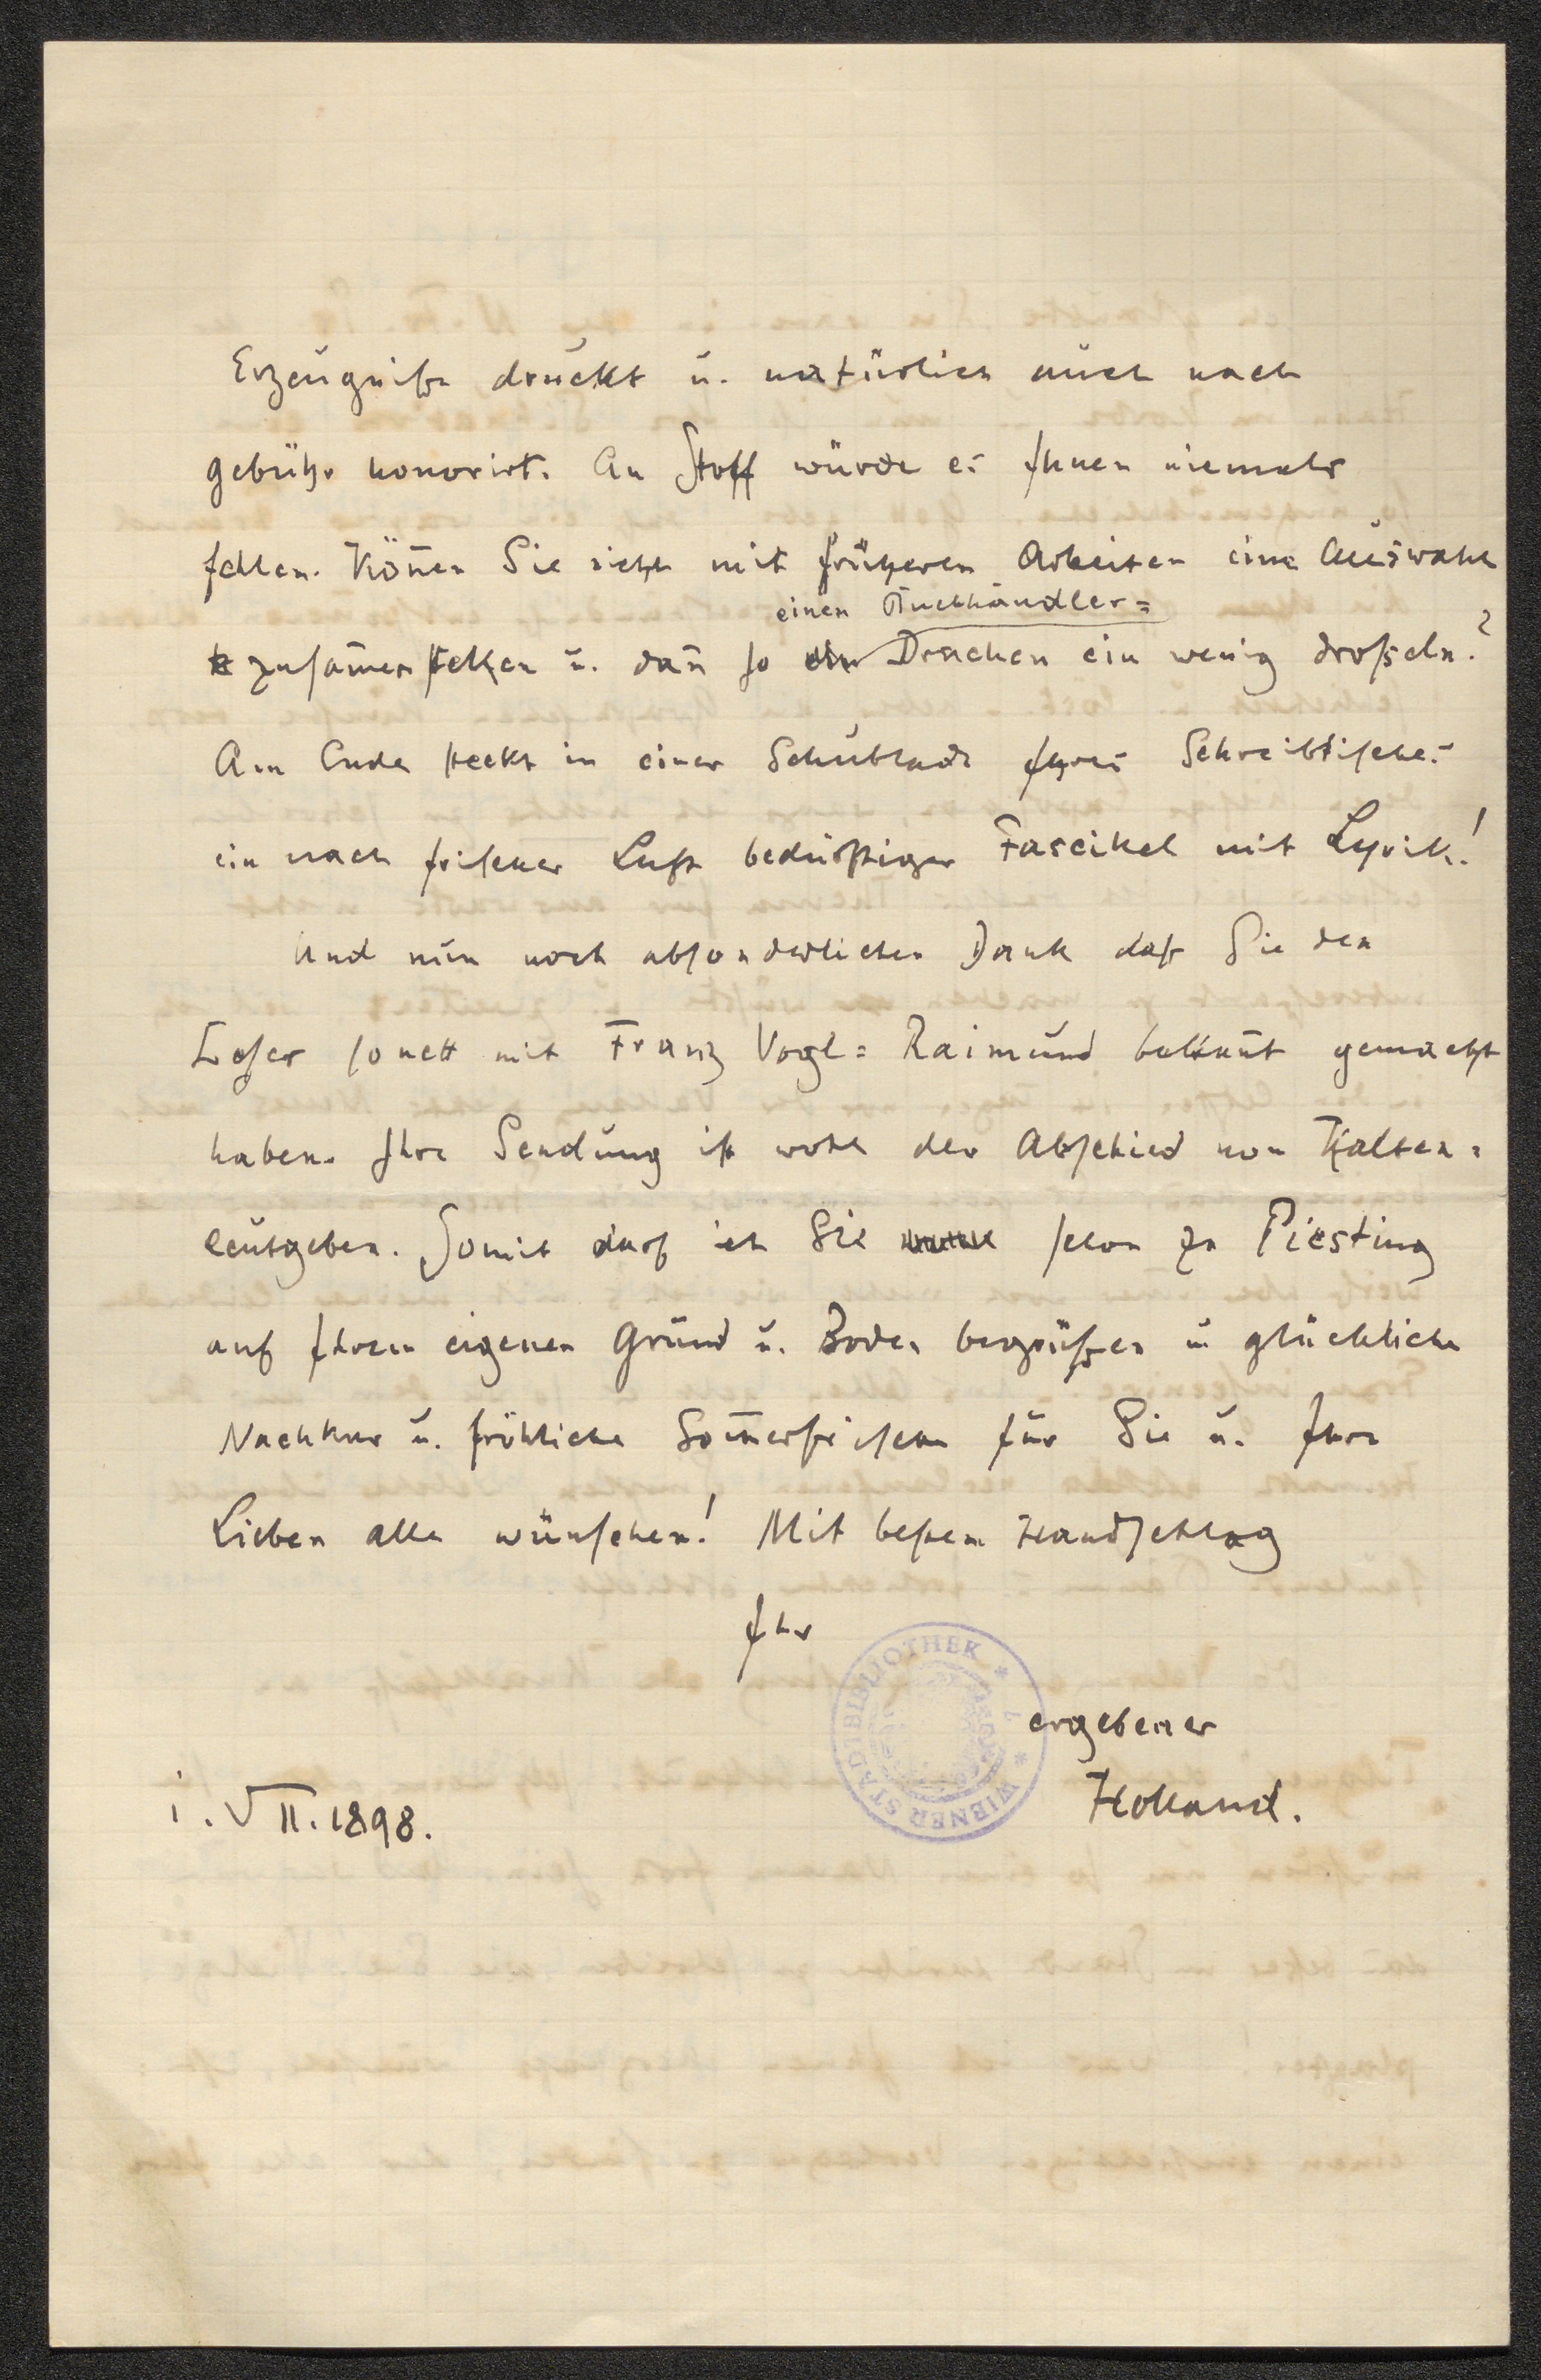 Erzeugniße druckt u. natürlich auch nach
gebühr honorirt. An Stoff würde es Ihnen niemals
fehlen. Können Sie nicht mit früheren Arbeiten eine Auswahl
einen Buchhändler=
zusam̄enstellen u. dan̄ so Drachen ein wenig droßeln?
Am Ende steckt in einer Schublade Ihres Schreibtisches
ein nach frischer Luft bedürftiger Fascikel mit Lyrik!
Und nun noch absonderlichen Dank daß Sie den
Loser so nett mit Franz Vogl=Raimund bekan̄t gemacht
haben. Ihre Sendung ist wohl der Abschied von Kalten=
leutgeben. Somit darf ich Sie schon zu Piesting
auf Ihrem eigenen Grund u. Boden begrüßen u glückliche
Nachkur u. fröhliche Som̄erfrische für Sie u. Ihre
Lieben alle wünschen! Mit bestem Handschlag
Ihr
ergebener
Holland.
1. VII. 1898.
WIENER STADTBIBLIOTHEK